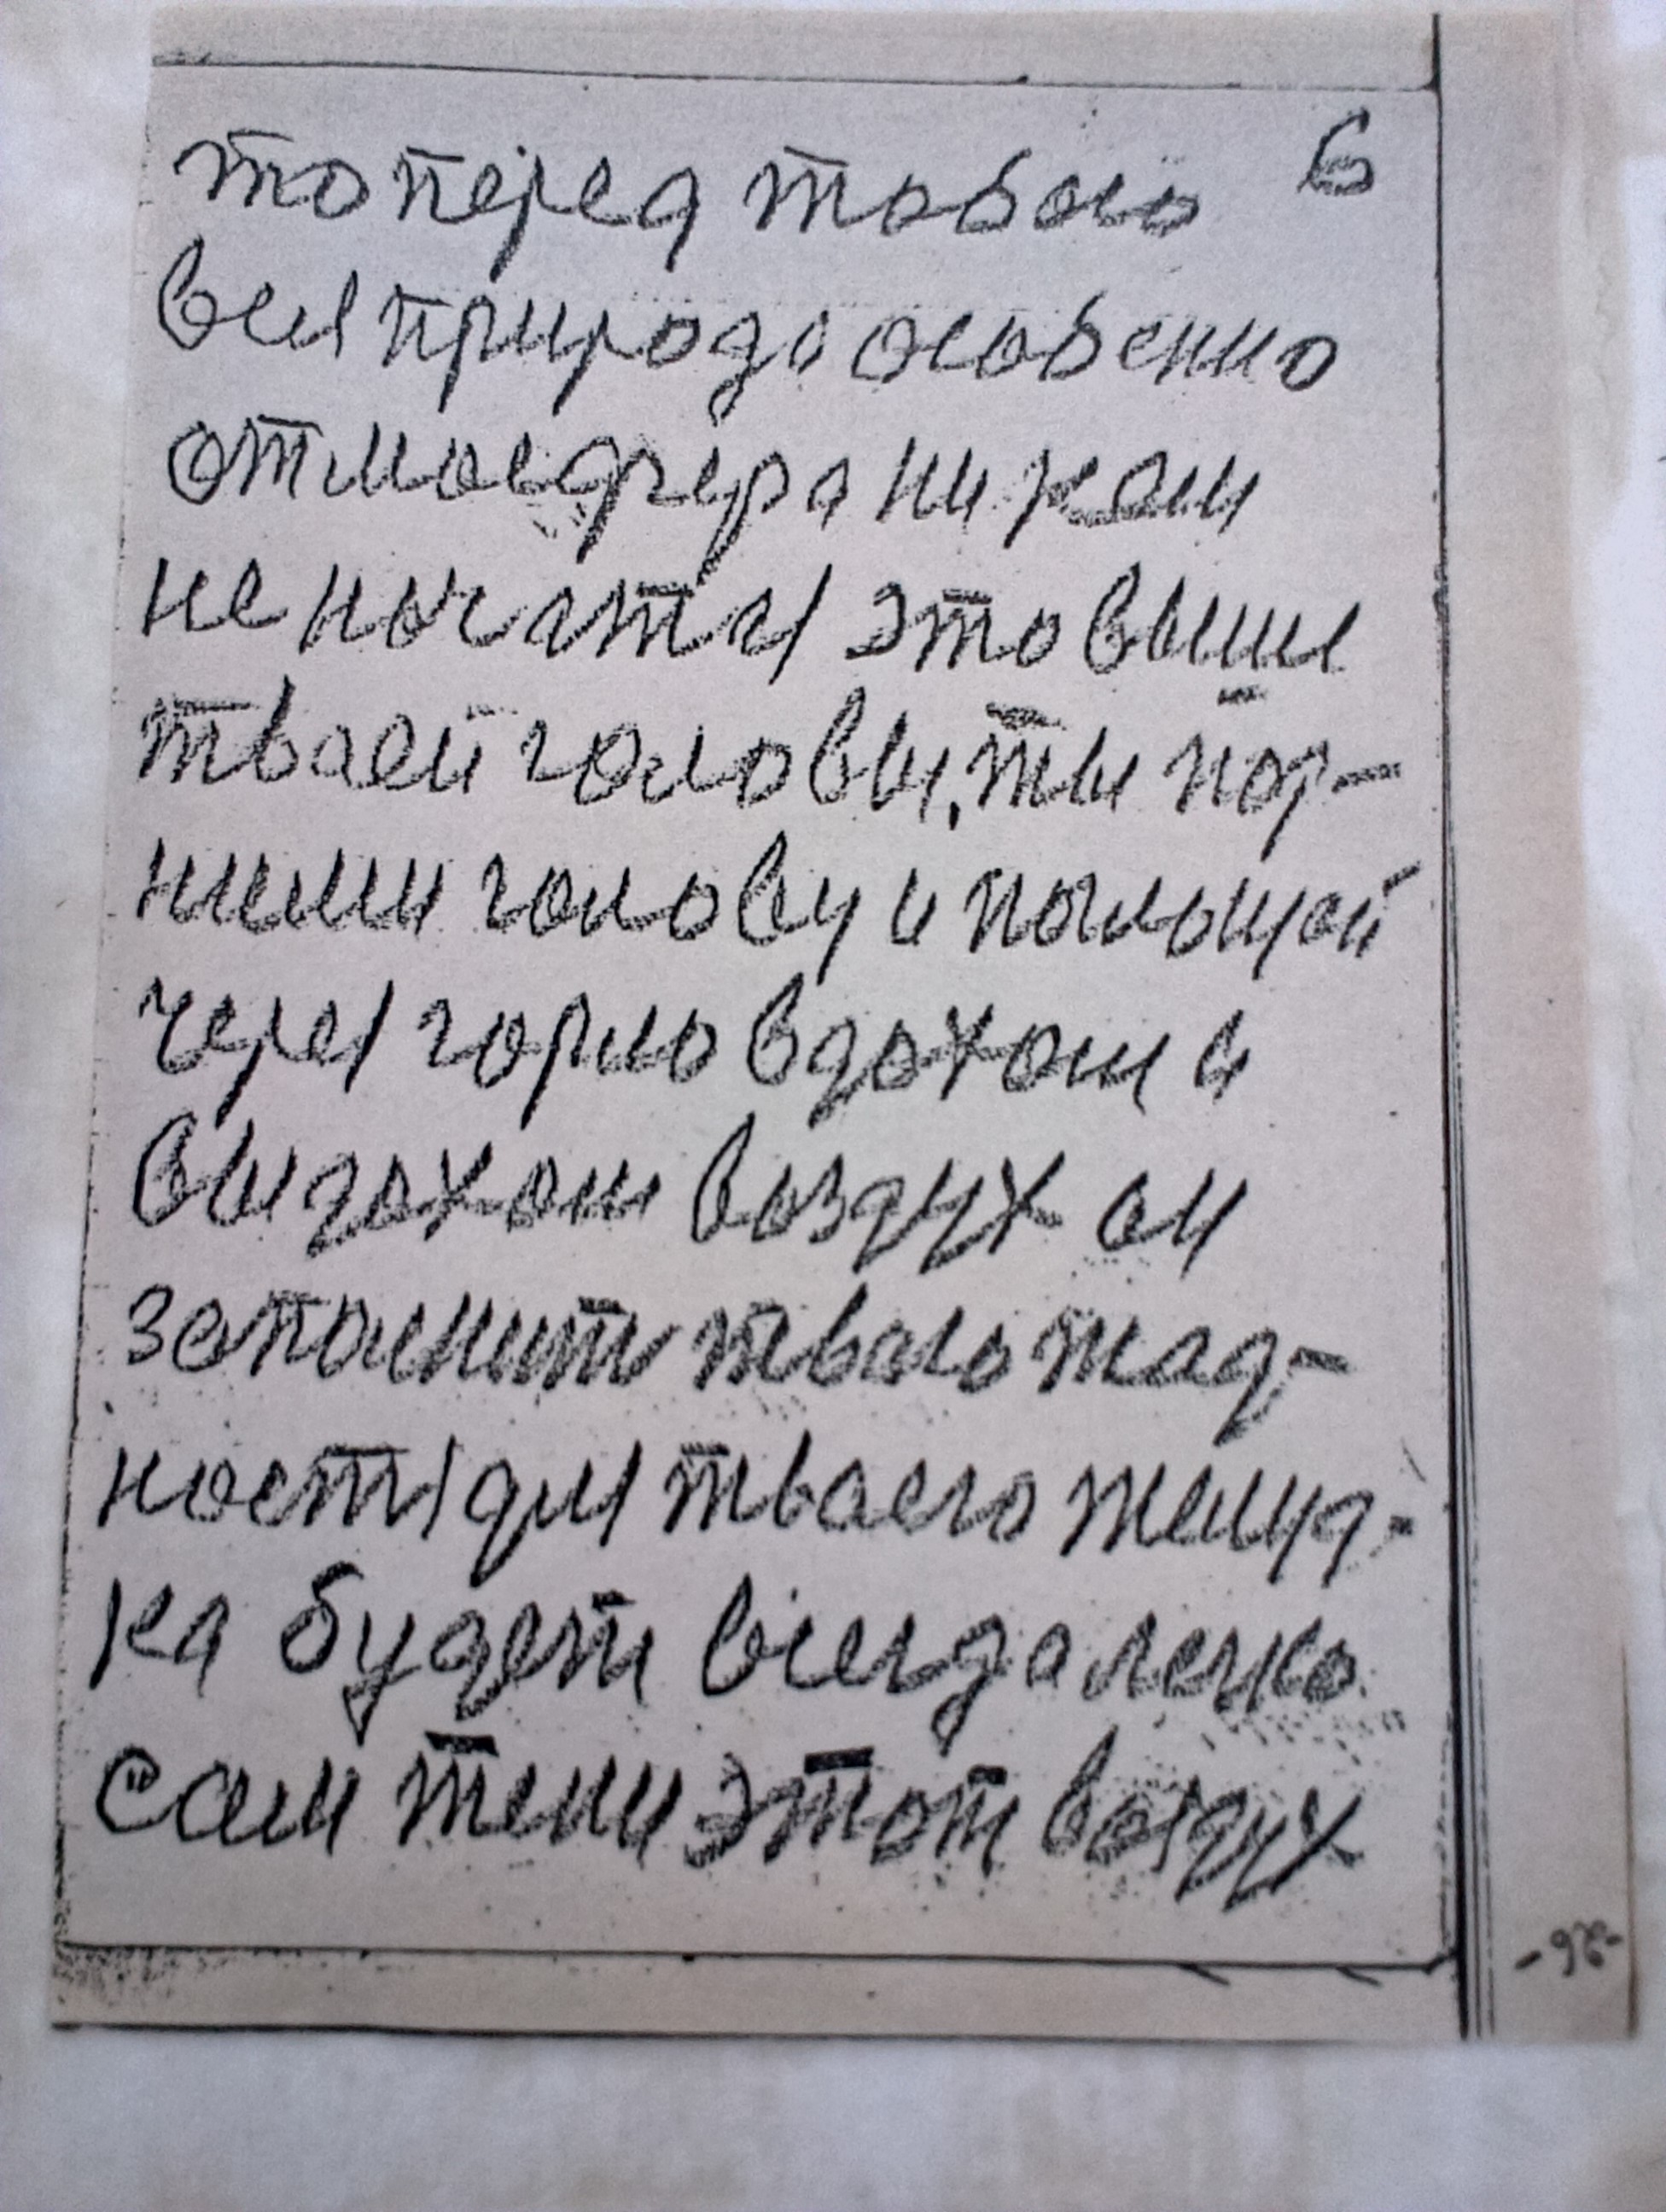 то перед тобою 6
вся природа особенно
отмосфера ни кем
не початая это выше
тваей головы, ты под-
ними голову и поглощай
через горло вдохом и
выдохом воздух он
заполнит тваю жад-
ность для тваего желуд-
ка будет всегда легко
сам тяни этот воздух
-96-